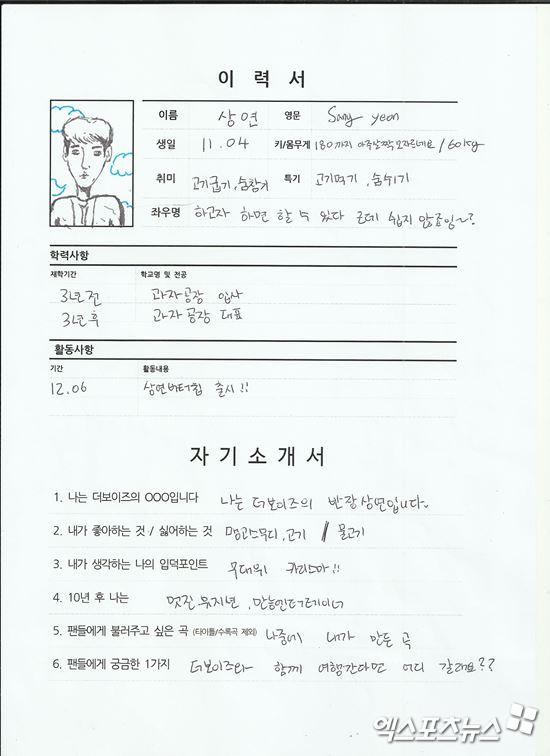 이 력 서
이름 상연 영문 Sang yeon
생일 11.04 키/몸무게 180까지 아주살짝 모자르네요 / 60kg
취미 고기굽기, 숨참기 특기 고기먹기, 숨쉬기
좌우명 하고자 하면 할 수 있다 근데 쉽지 않죠잉~?
학력사항
재학기간 학교명 및 전공
3년전 과자공장 입사
3년후 과자공장 대표
활동사항
기간 활동내용
12.06 상연버터칩 출시!!
자 기 소 개 서
1. 나는 더보이즈의 OOO입니다 나는 더보이즈의 반장 상연입니다.
2. 내가 좋아하는 것 / 싫어하는 것 망고스무디, 고기 / 물고기
3. 내가 생각하는 나의 입덕포인트 무대위 카리스마!!
4. 10년 후 나는 멋진 뮤지션, 만능엔터테이너
5. 팬들에게 불러주고 싶은 곡 (타이틀/수록곡 제외) 나중에 내가 만든 곡
6. 팬들에게 궁금한 1가지 더보이즈와 함께 여행간다면 어디 갈래요??
엑스포츠뉴스